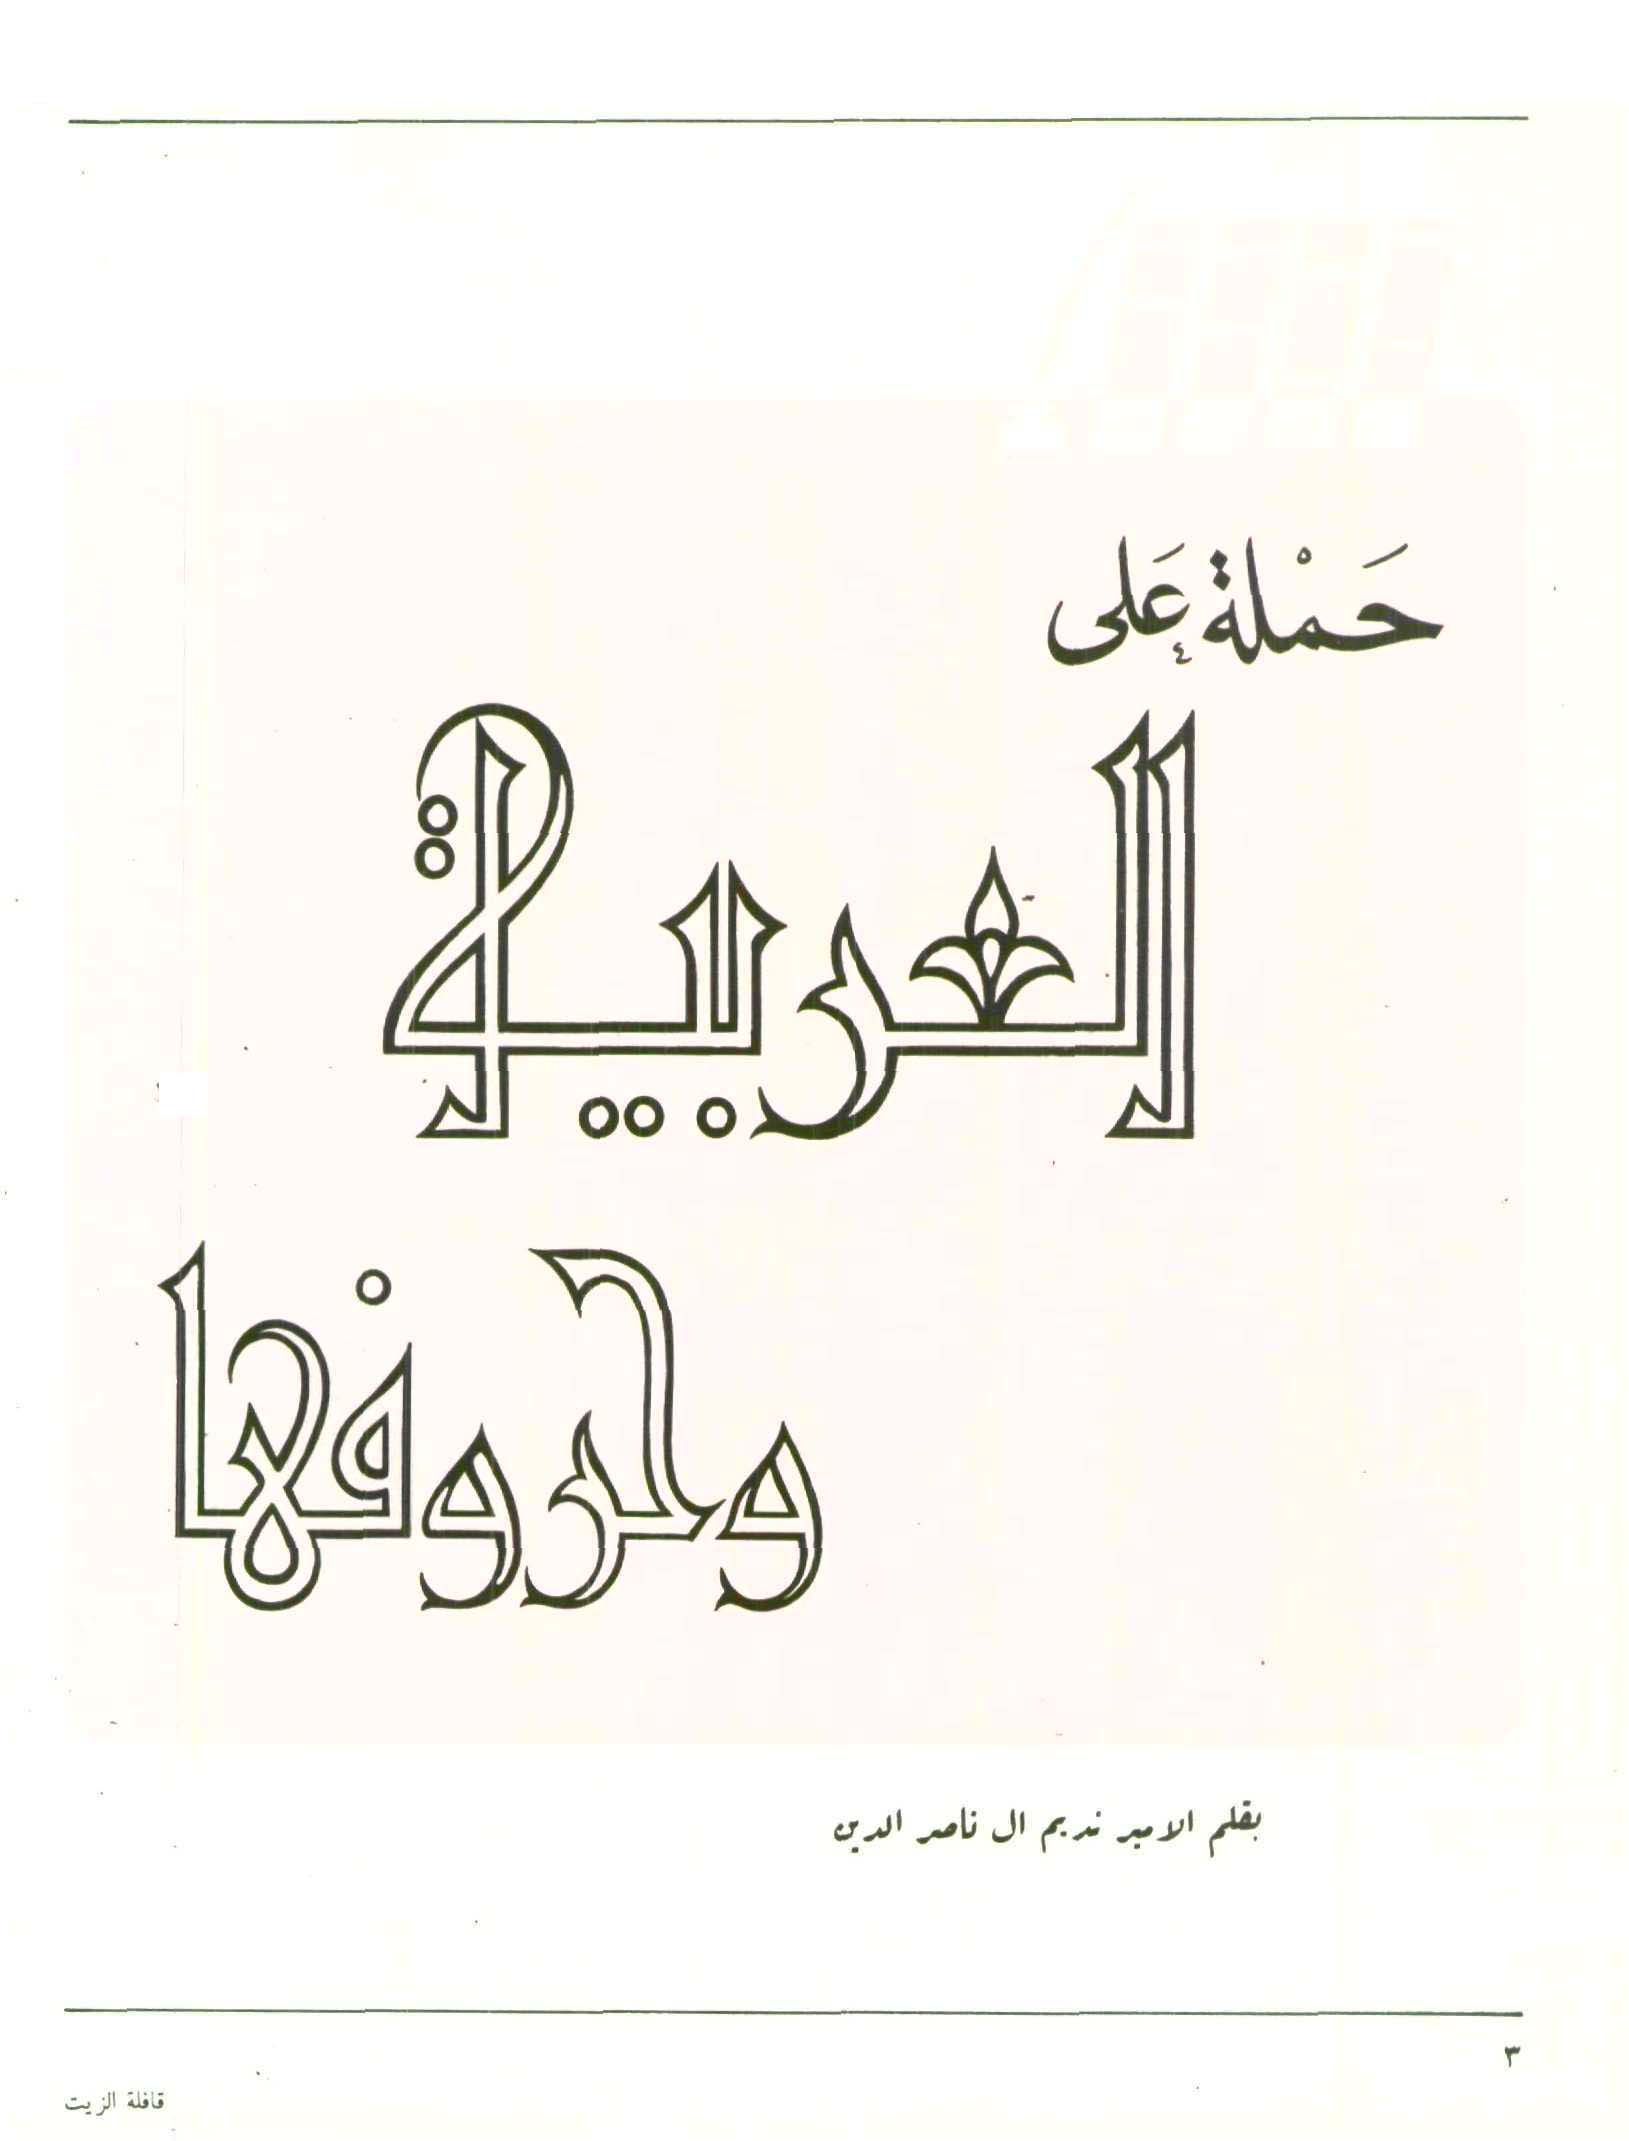 حَمْلة عَلى
العربية
وحروفها
بقلم الامير نديم ال ناصر الدين
٣
قافلة الزيت